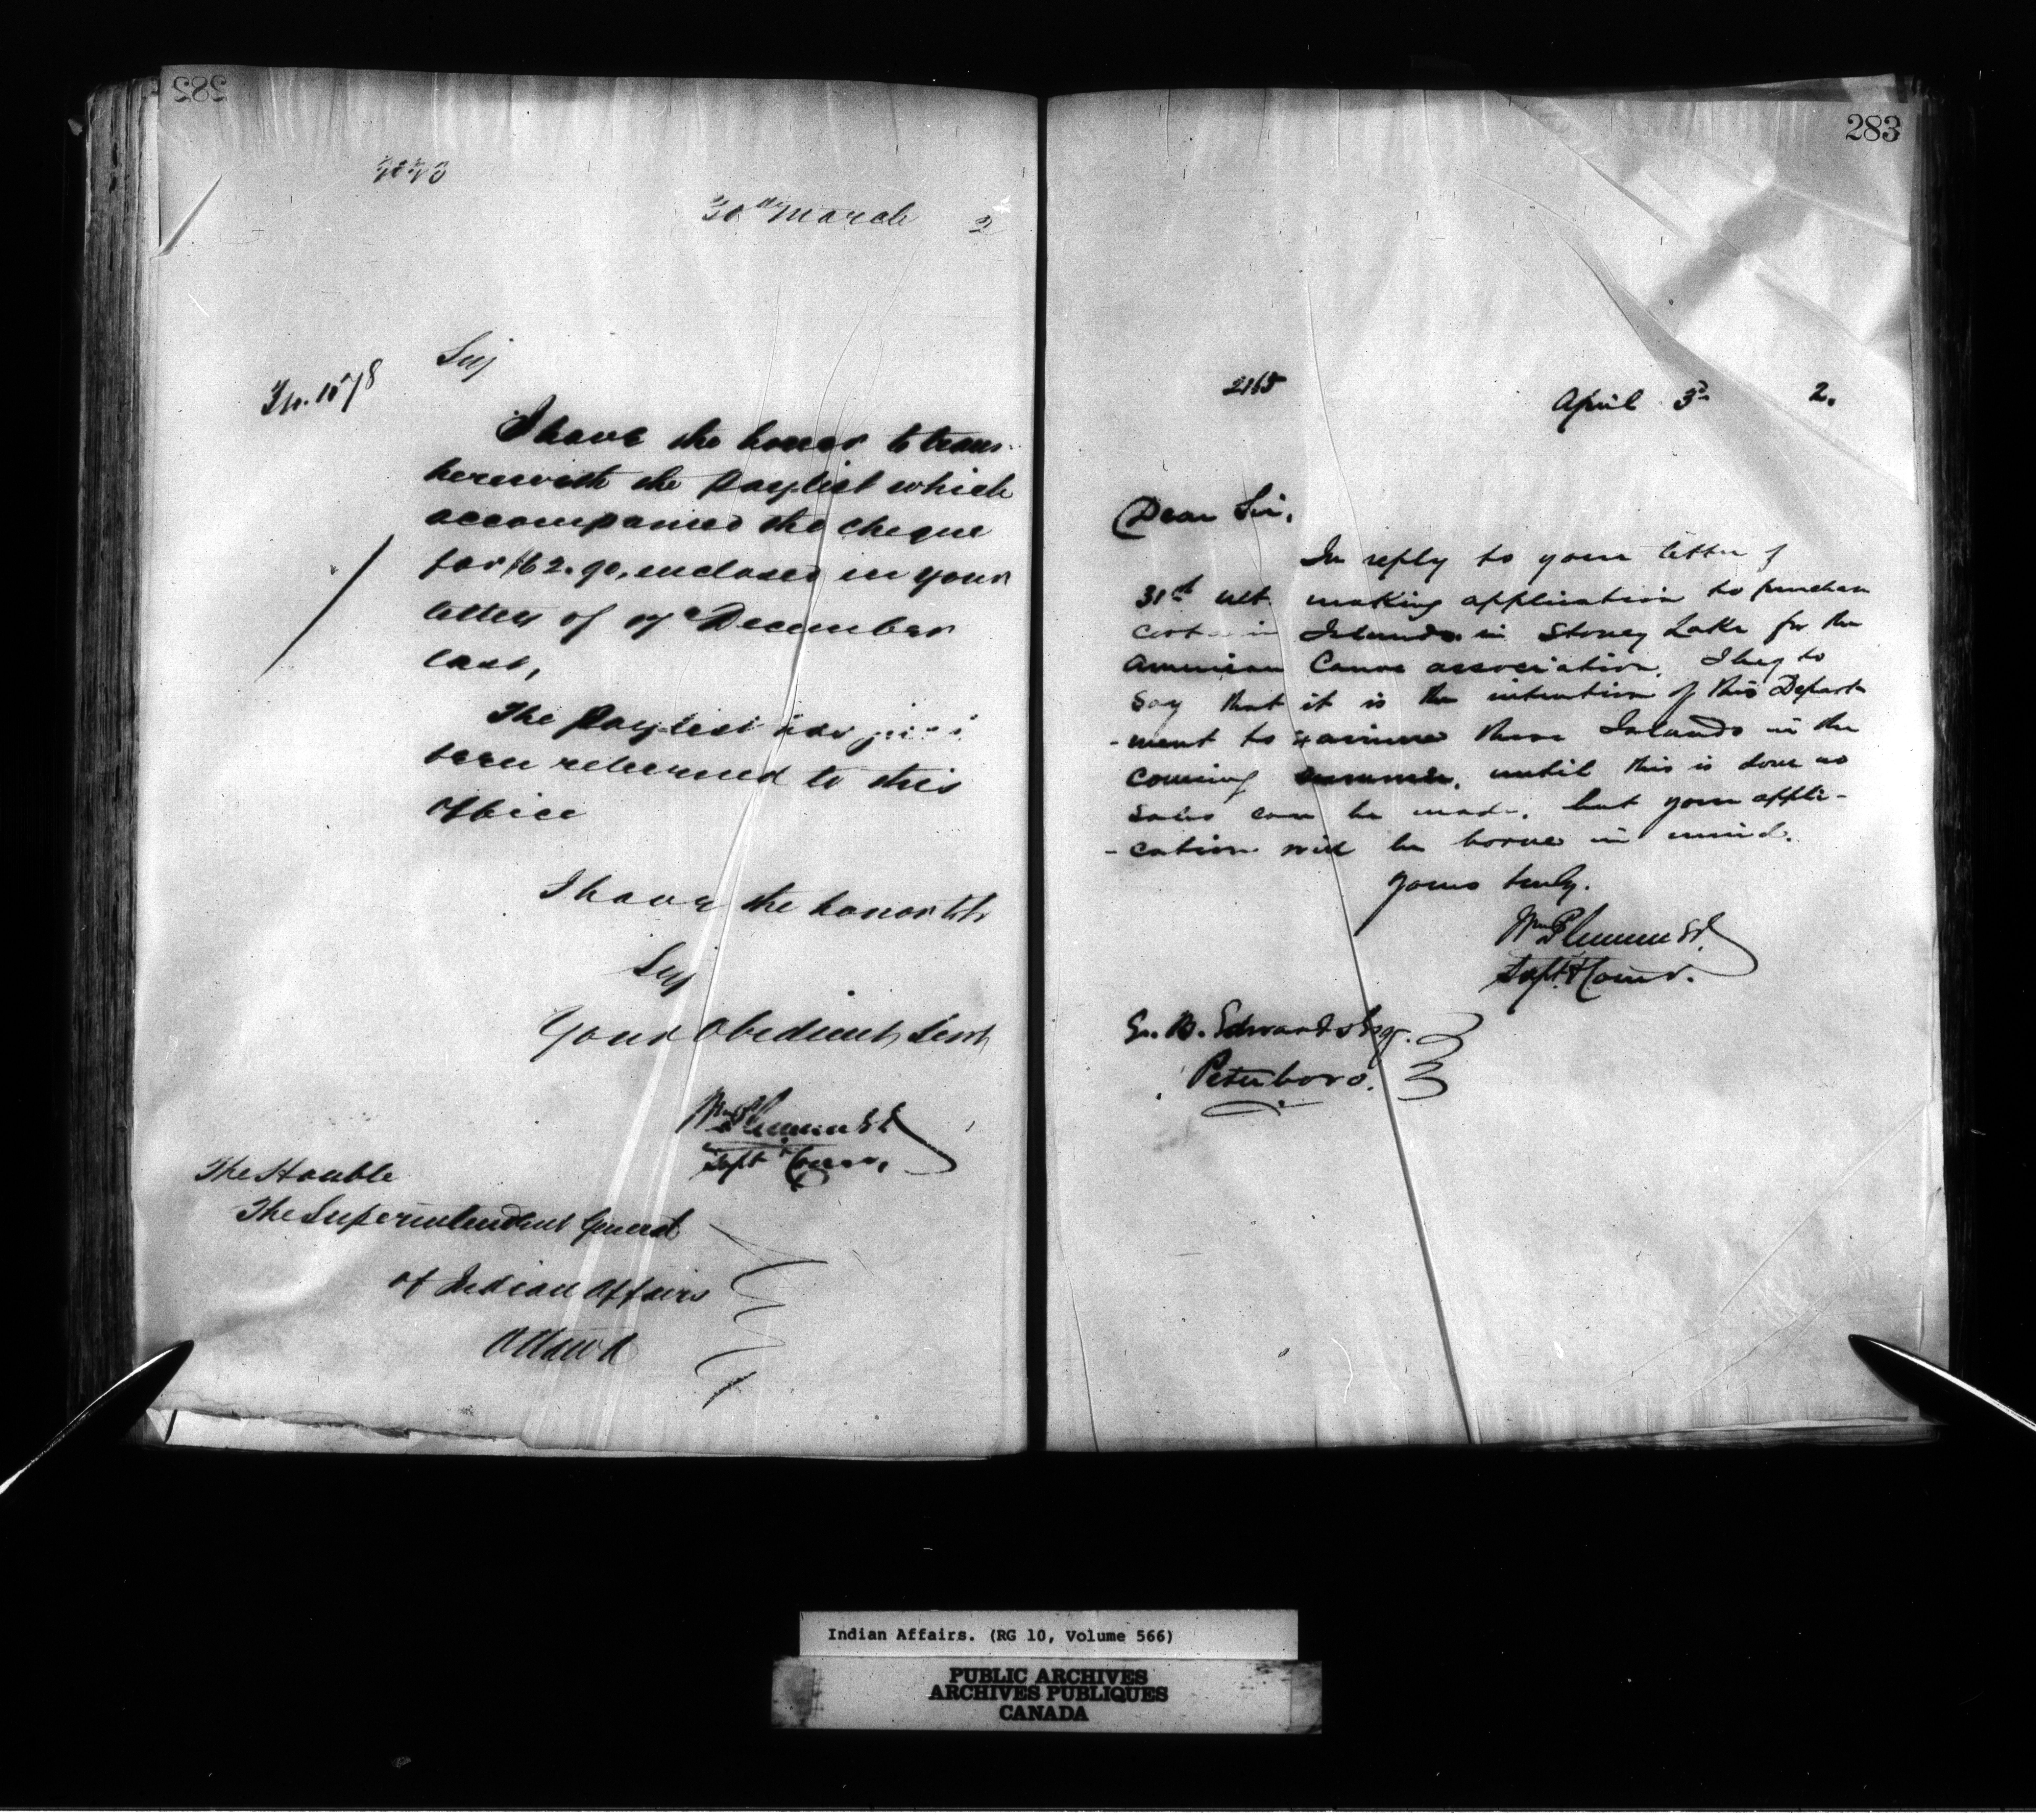 282
30th March 2
Sir,
I have the honor to trans-
herewith the Paylist which
accompanied the cheque
for $62.90, enclosed in your
letter of December
last,
The Paylist has just
been returned to this
Office
I have the honor to be
Sir,
Your Obedient Servt
Wm Plummer
Supt & Comr.
The Honble
The Superintendent General
of Indian Affairs
Ottawa
283
2165
April 3d 2.
Dear Sir,
In reply to your letter of
31st ult. making application to purchase
certain Islands in Stoney Lake for the
American Canoe association, I beg to
say that it is the intention of this Depart-
-ment to examine these Islands in the
coming summer, until this is done no
sales can be made, but your appli-
-cation will be borne in mind.
Yours truly.
Wm Plummer
Supt. & Comr.
E. B. Edwards Esqr.
Peterboro.
Indian Affairs. (RG 10, Volume 566)
PUBLIC ARCHIVES
ARCHIVES PUBLIQUES
CANADA